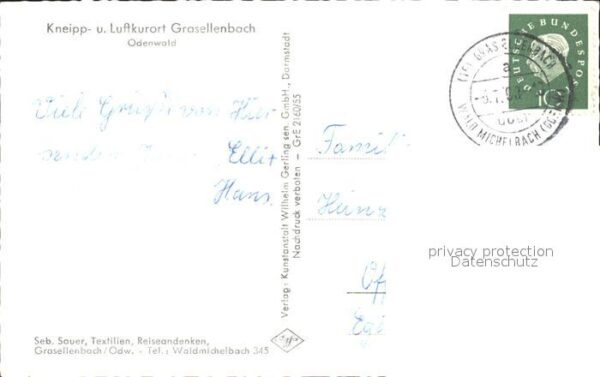 Kneipp- u. Luftkurort Grasellenbach
Odenwald
Viele Grüße von Hier
senden
Ellis
Hans
Verlag: Kunstanstalt Wilhelm Gerling sen. GmbH., Darmstadt
Nachdruck verboten – GrE 2160/55
DEUTSCHE BUNDESPOST
10
WALD MICHELBACH
Famil
Heinz
privacy protection
Datenschutz
Seb. Sauer, Textilien, Reiseandenken,
Grasellenbach/Odw. - Tel.: Waldmichelbach 345